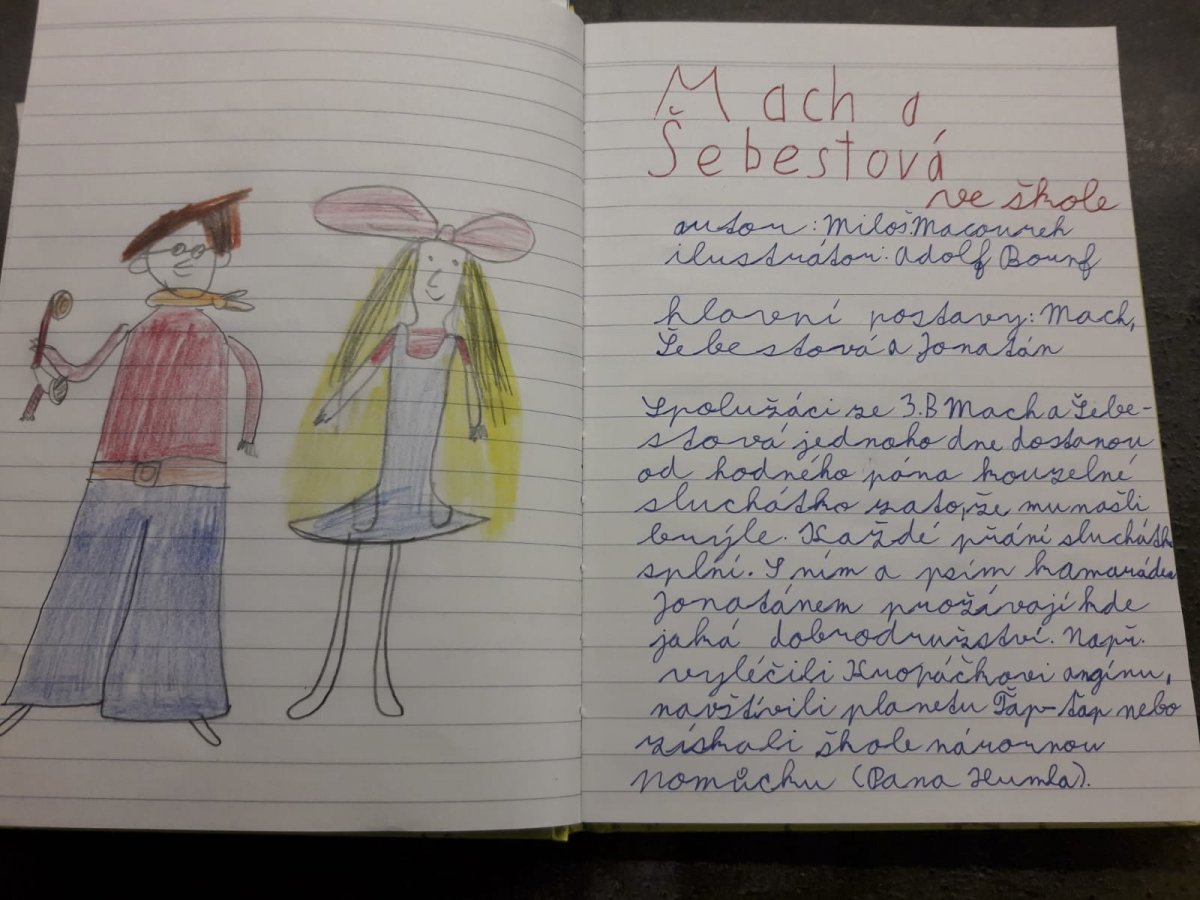 Mach a
Šebestová
ve škole
autor: Miloš Macourek
ilustrátor: Adolf Bornf
hlavní postavy: Mach,
Šebestová a Jonatán
Spolužáci ze 3.B Mach a Šebe-
stová jednoho dne dostanou
od hodného pána kouzelné
sluchátko za to, že mu našli
brýle. Každé přání sluchátko
splní. S ním a psím kamarádem
Jonatánem prožívají kde
jaká dobrodružství. Např.
vyléčili Kropáčkovi angínu,
navštívili planetu Ťap-ťap nebo
získali škole názornou
pomůcku (Pana Humla).